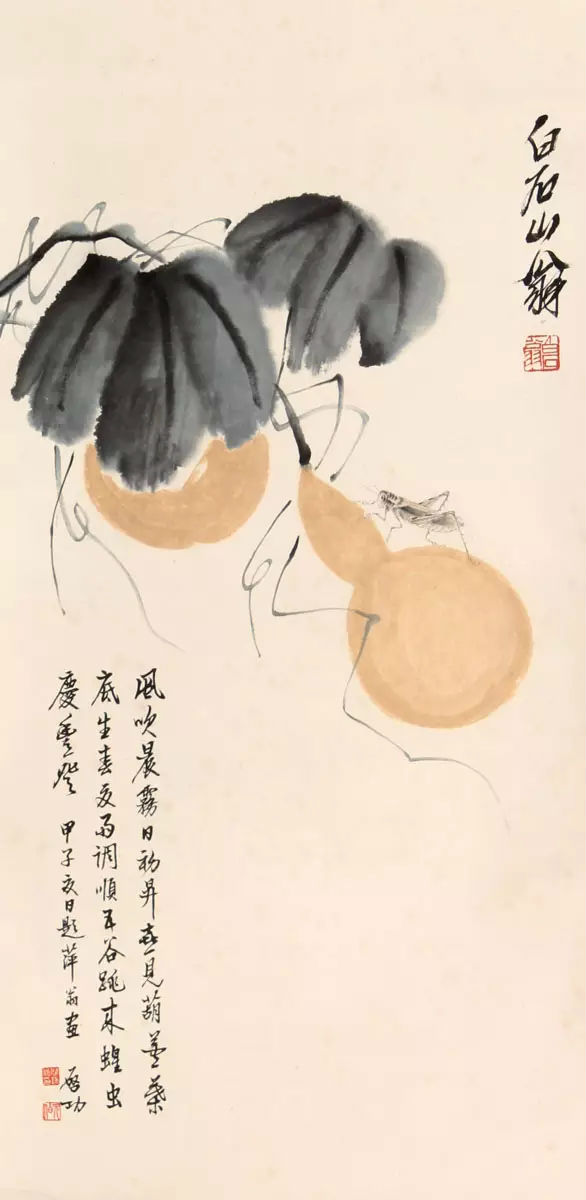 白石山翁
風吹晨霧日初昇喜見葫蘆葉
底生春夏雨調順五谷跳來蝗虫
慶豐登 甲子夏日題萍翁畫 啟功